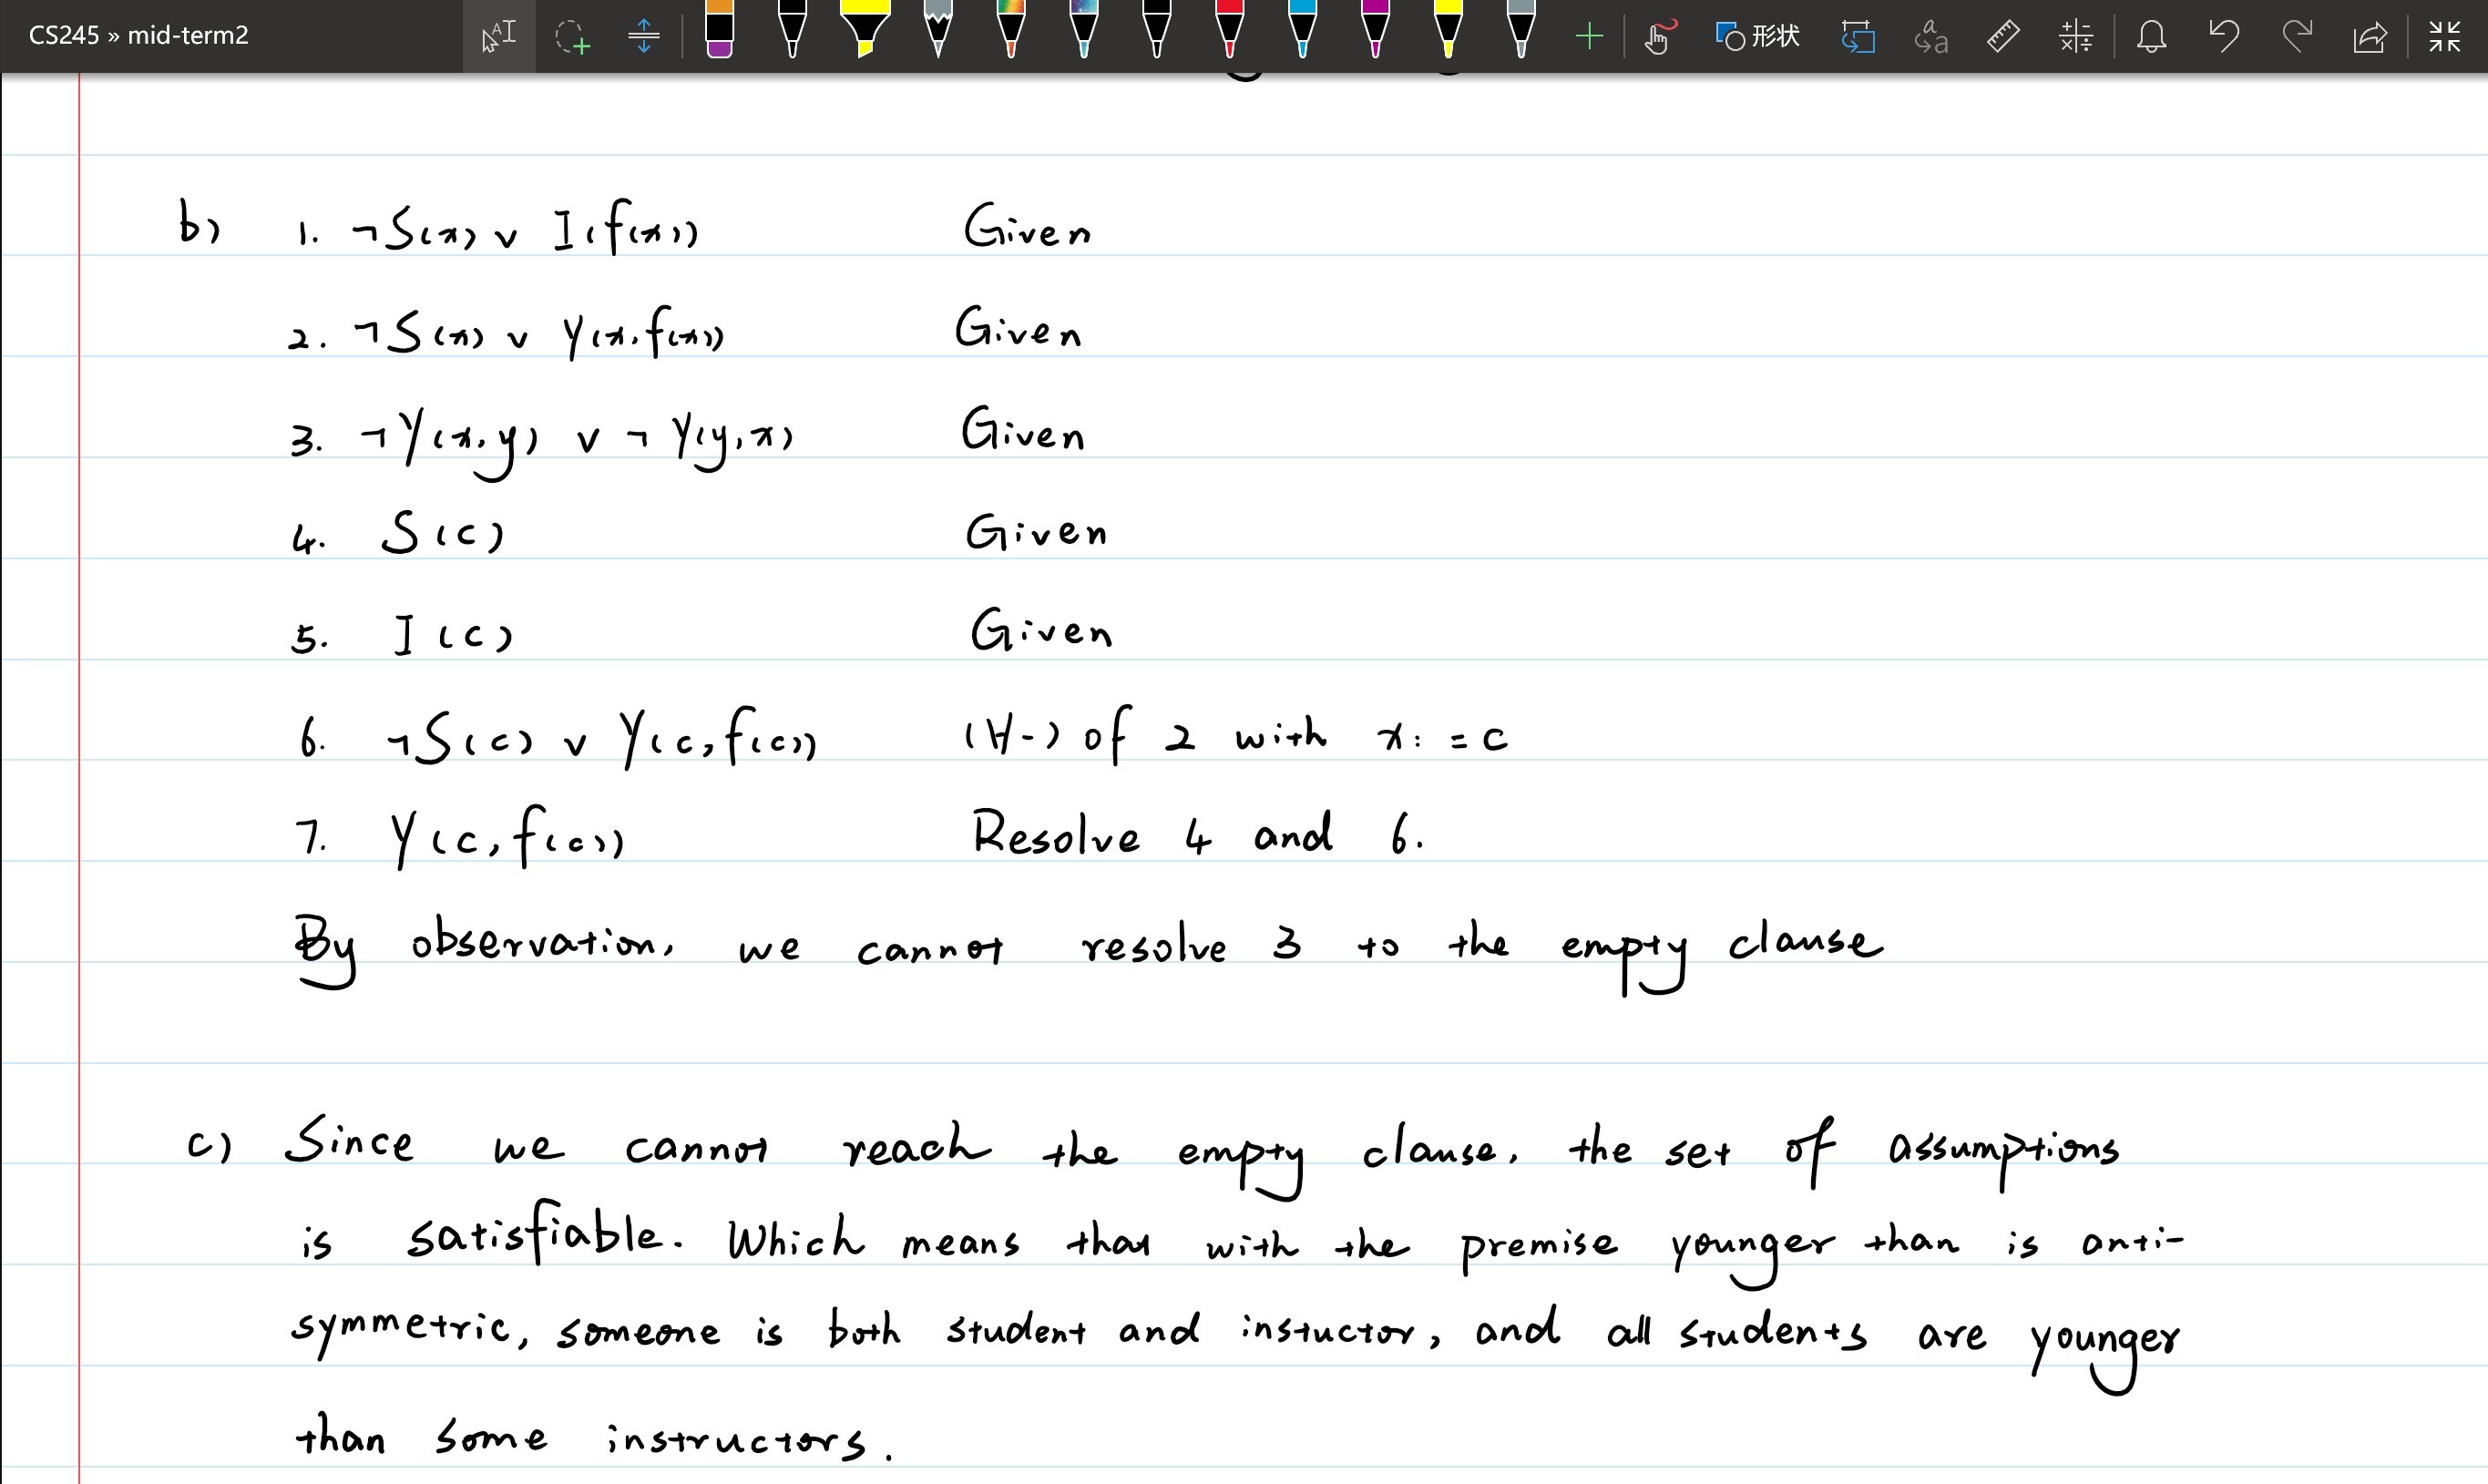 CS245 » mid-term2
形状
b) 1. ¬S(x) ∨ I(f(x)) Given
2. ¬S(x) ∨ Y(x, f(x)) Given
3. ¬Y(x, y) ∨ ¬Y(y, x) Given
4. S(c) Given
5. I(c) Given
6. ¬S(c) ∨ Y(c, f(c)) (∀-) of 2 with x := c
7. Y(c, f(c)) Resolve 4 and 6.
By observation, we cannot resolve 3 to the empty clause
c) Since we cannot reach the empty clause, the set of assumptions
is satisfiable. Which means that with the premise younger than is anti-
symmetric, someone is both student and instuctor, and all students are younger
than some instructors.